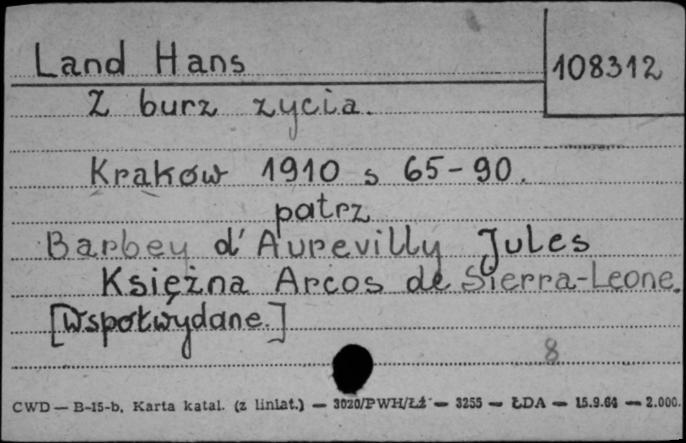 Land Hans
108312
Z burz zycia.
Kraków 1910 s 65-90.
patrz
Barbey d'Aurevilly Jules
Księżna Arcos de Sierra-Leone.
[Współwydane.]
8
CWD — B-15-b. Karta katal. (z liniat.) — 3020/PWH/ŁŻ — 3255 — ŁDA — 15.9.64 — 2.000.